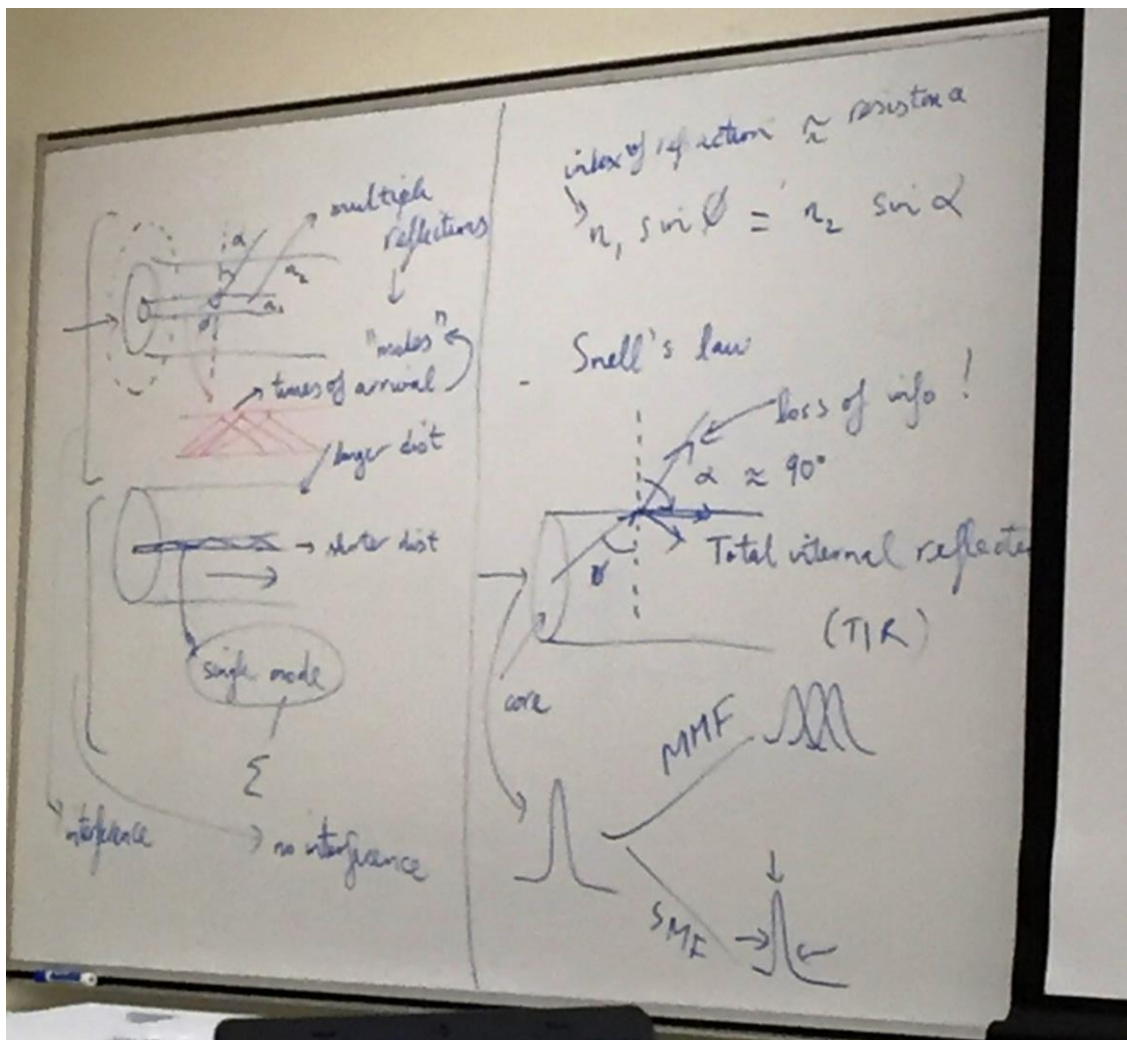 multiple
reflections
α
n₂
n₁
"modes"
times of arrival
larger dist
single mode
Σ
interference
no interference
index of refraction ≈
n₁ sin ∅ = n₂ sin α
Snell's law
loss of info !
α ≈ 90°
Total internal reflecte
(TIR)
core
MMF
SMF